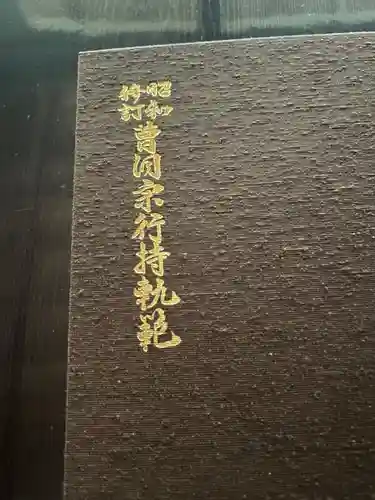 昭和
修訂
曹洞宗行持軌範